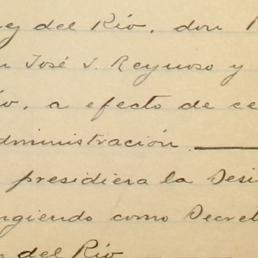 ey del Río, don
José J. Reynoso y
a efecto de ce
dministración.
presidiera la Desi
ngiendo como Secret
del Río